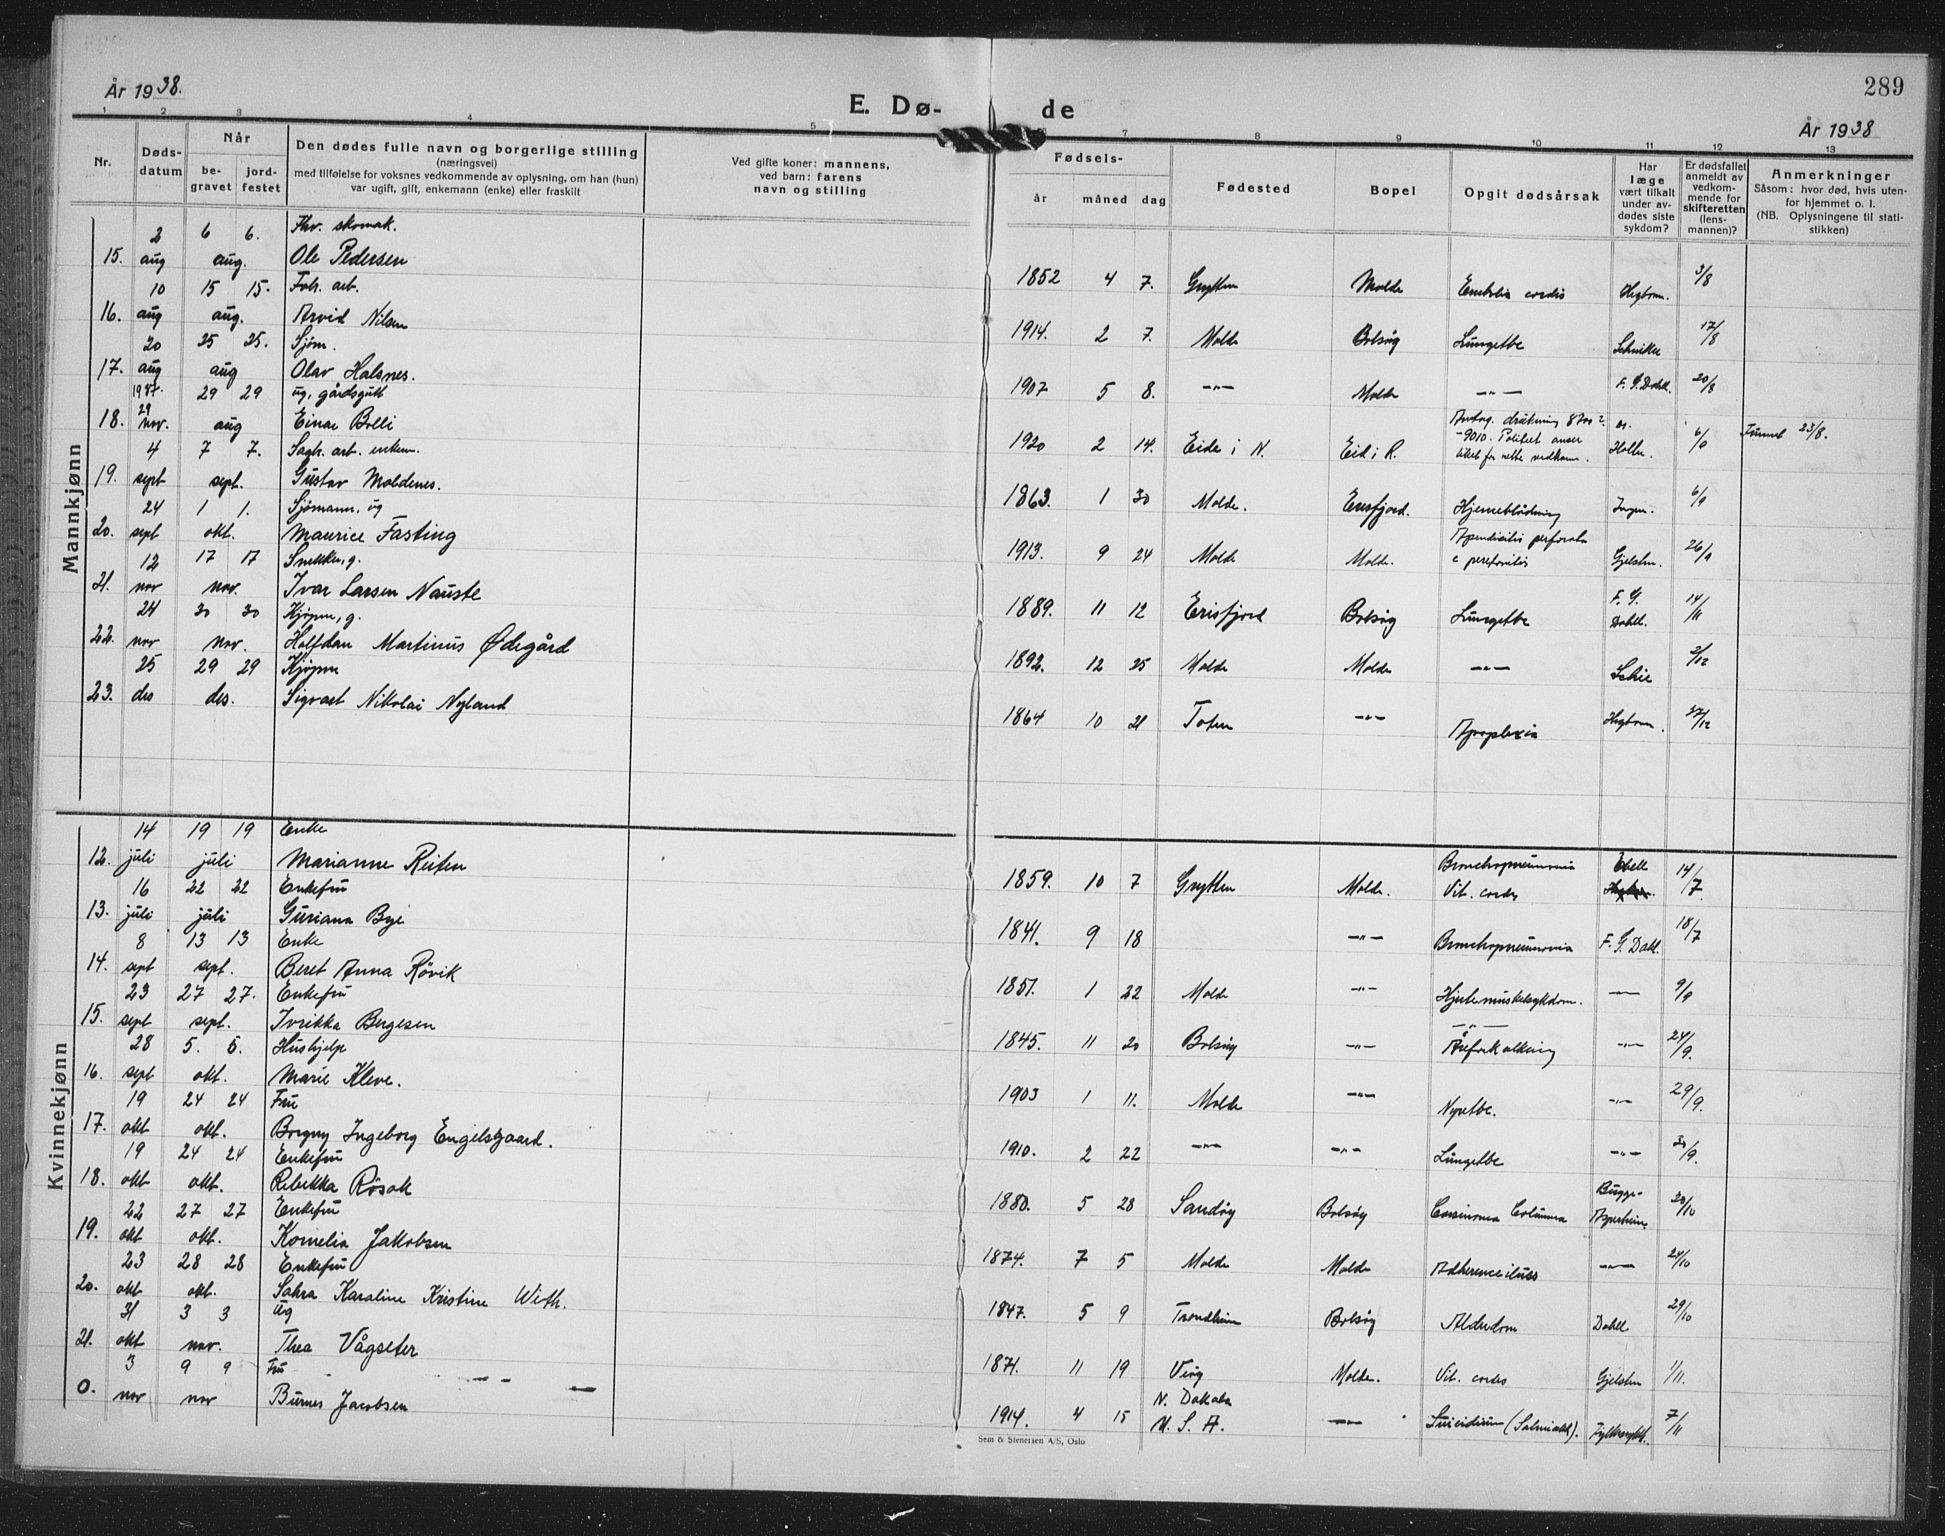 289
År 1938.
E. Dø- de
År 1938
1 2 3 4 5 6 7 8 9 10 11 12 13
Nr.
Døds-
datum
Når
be-
gravet
jord-
festet
Den dødes fulle navn og borgerlige stilling
(næringsvei)
med tilføielse for voksnes vedkommende av oplysning, om han (hun)
var ugift, gift, enkemann (enke) eller fraskilt
Ved gifte koner: mannens,
ved barn: farens
navn og stilling
Fødsels-
år måned dag
Fødested
Bopel
Opgit dødsårsak
Har
læge
vært tilkalt
under av-
dødes siste
sykdom?
Er dødsfallet
anmeldt av
vedkom-
mende for
skifteretten
(lens-
mannen)?
Anmerkninger
Såsom: hvor død, hvis uten-
for hjemmet o. l.
(NB. Oplysningene til stati-
stikken)
Mannkjønn
2 6 6. Fhv. skomak.
15. aug aug. Ole Pedersen 1852 4 7. Grytten Molde Embolia cordis 3/8
10 15 15. Fabr. arb.
16. aug aug. Arvid Nilsen 1914. 2 7. Molde Bolsøy Lungetbc 17/8
20 25 25. Sjøm.
17. aug aug Olav Halsnes. 1907 5 8. —"— Molde —"— F. G. Dahl. 20/8
29 29 ug. gårdsgutt
18. nov. aug Einar Bolli 1920 2 14. Eide i N. Eid i R. 6/9 Funnet 23/8.
4 7 7. Sagb. arb. enkem.
19. sept sept. Gustav Moldenes. 1863. 1 30 Molde. Eresfjord. Hjerneblødning Ingen. 6/9
24 1 1. Sjømann, ug
20. sept okt. Maurice Fasting 1913. 9 24 Molde Molde. Apendisitis perforata Gjelsten. 26/9
12 17 17 Snekker, g.
21. nov nov. Ivar Larsen Nauste 1889. 11 12 Erisfjord Bolsøy Lungetbc F. G. Dahll. 14/11
24 30 30 Kjøpm, g.
22. nov nov. Halfdan Martinus Ødegård 1892. 12 25 Molde Molde —"— 2/12
25 29 29 Kjøpm
23. des des. Sigvart Nikolai Nyland 1864 10 21 Toten —"— Apoplexia 27/12
Kvinnekjønn
14 19 19 Enke
12. juli juli Marianne Reiten 1859. 10 7 Grytten Molde. Bronchopneumonia Vit. cordis 14/7
16 22 22 Enkefru
13. juli juli Guriana Bye 1841. 9 18 —"— Bronchopneumonia F. G. Dahl. 18/7
8 13 13 Enke
14. sept sept. Beret Anna Røvik 1851. 1 22 Molde —"— Hjertemuskelsykdom. —"— 9/9
23 27 27. Enkefru
15. sept sept. Ivrikka Bergesen 1845. 11 20 Bolsøy —"— —"— Åreforkalkning —"— 24/9.
28 5. 5. Hushjelp
16. sept okt. Marie Kleve. 1903 1 11. Molde —"— Nyretbc. —"— 29/9.
19 24 24 Fru
17. okt okt. Borgny Ingeborg Engelsgaard. 1910. 2 22 —"— —"— Lungetbc —"— /9.
19 24 24 Enkefru
18. okt okt. Rebekka Røsok 1880. 5 28 Sandøy Bolsøy Carsinoma Columna Bugge- 20/10
22 27 27 Enkefru
19. okt okt. Kornelia Jakobsen 1874. 7 5 Molde Molde Adherenceileus —"— 24/10
23 28 28 Enkefru
20. okt okt. Sahra Karaline Kristine With. 1847. 5 9 Trondheim Bolsøy Alderdom Dahll 29/10
31 3 3 ug
21. okt nov. Thea Vågseter 1871. 11 19 Veøy Molde. Vit. cordis Gjelsten 1/11.
3 9 9 Fru
0. nov nov Jacobsen 1914. 4 15 N. Dakota U. S. A. —"— Suicidium 7/11
Sem & Stenersen A/S, Oslo